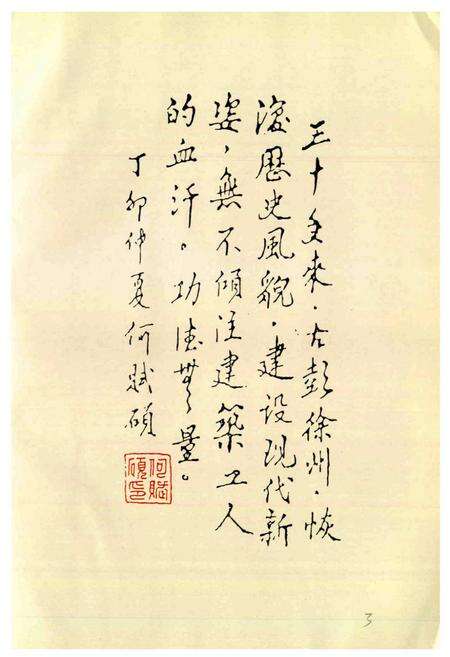 三十多來，古彭徐州，恢
復歷史風貌，建设现代新
姿，無不傾注建築工人
的血汗。功德無量。
丁卯仲夏何賦碩
何賦
碩印
3